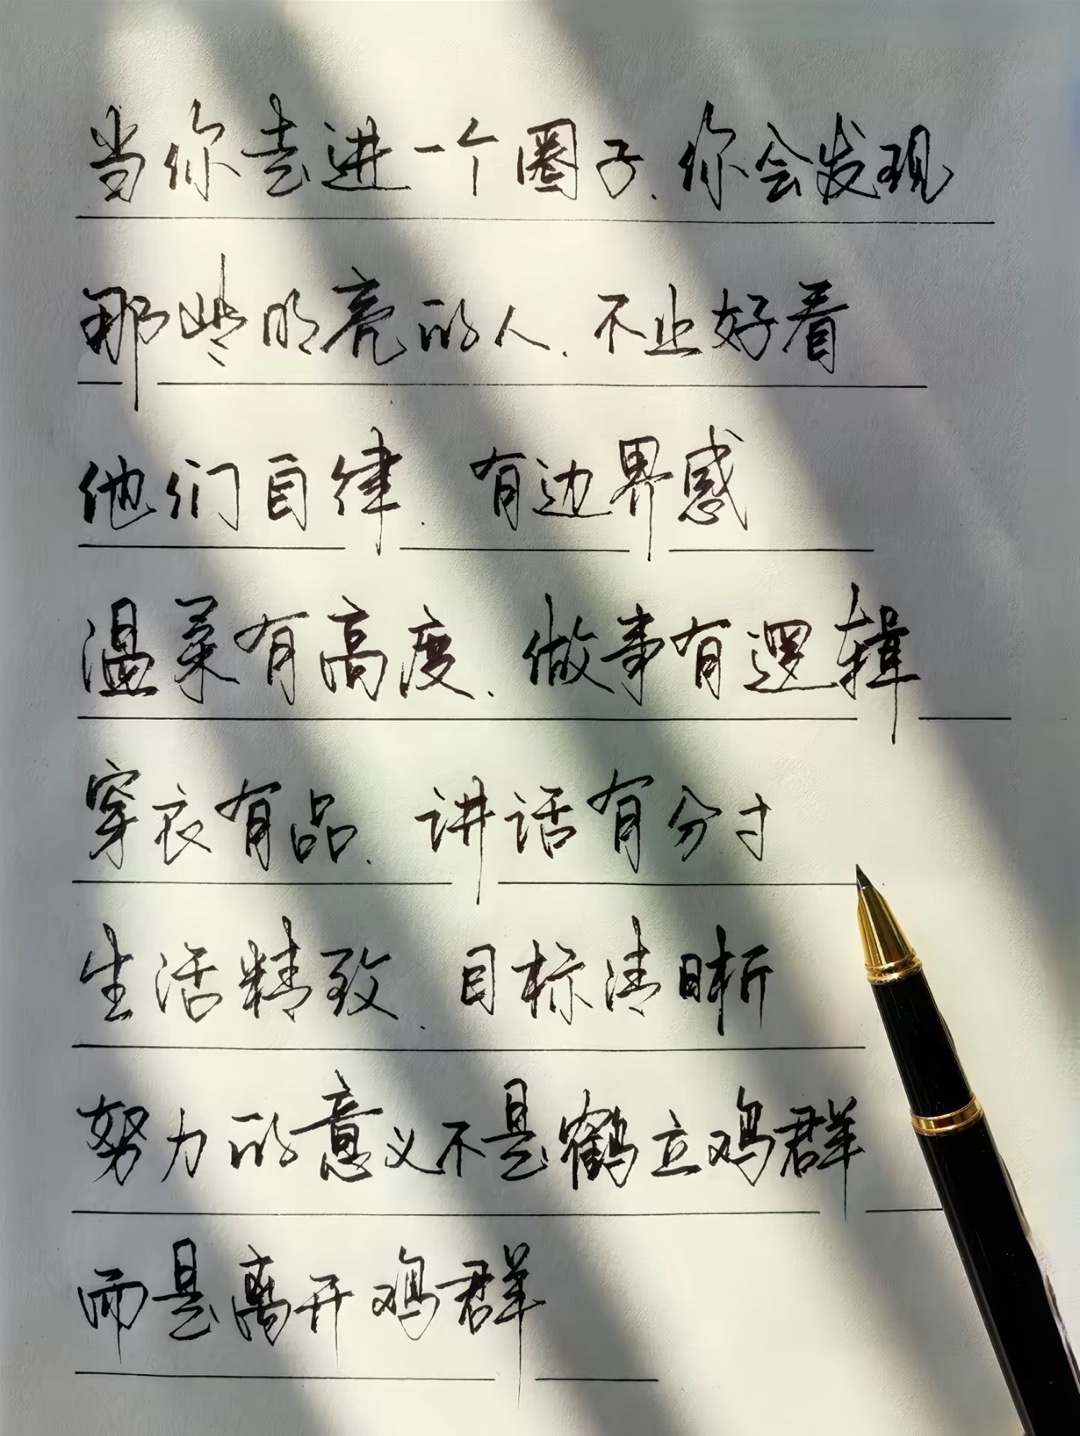 当你走进一个圈子，你会发现
那些明亮的人，不止好看
他们自律，有边界感
温柔有高度，做事有逻辑
穿衣有品，讲话有分寸
生活精致，目标清晰
努力的意义不是鹤立鸡群
而是离开鸡群